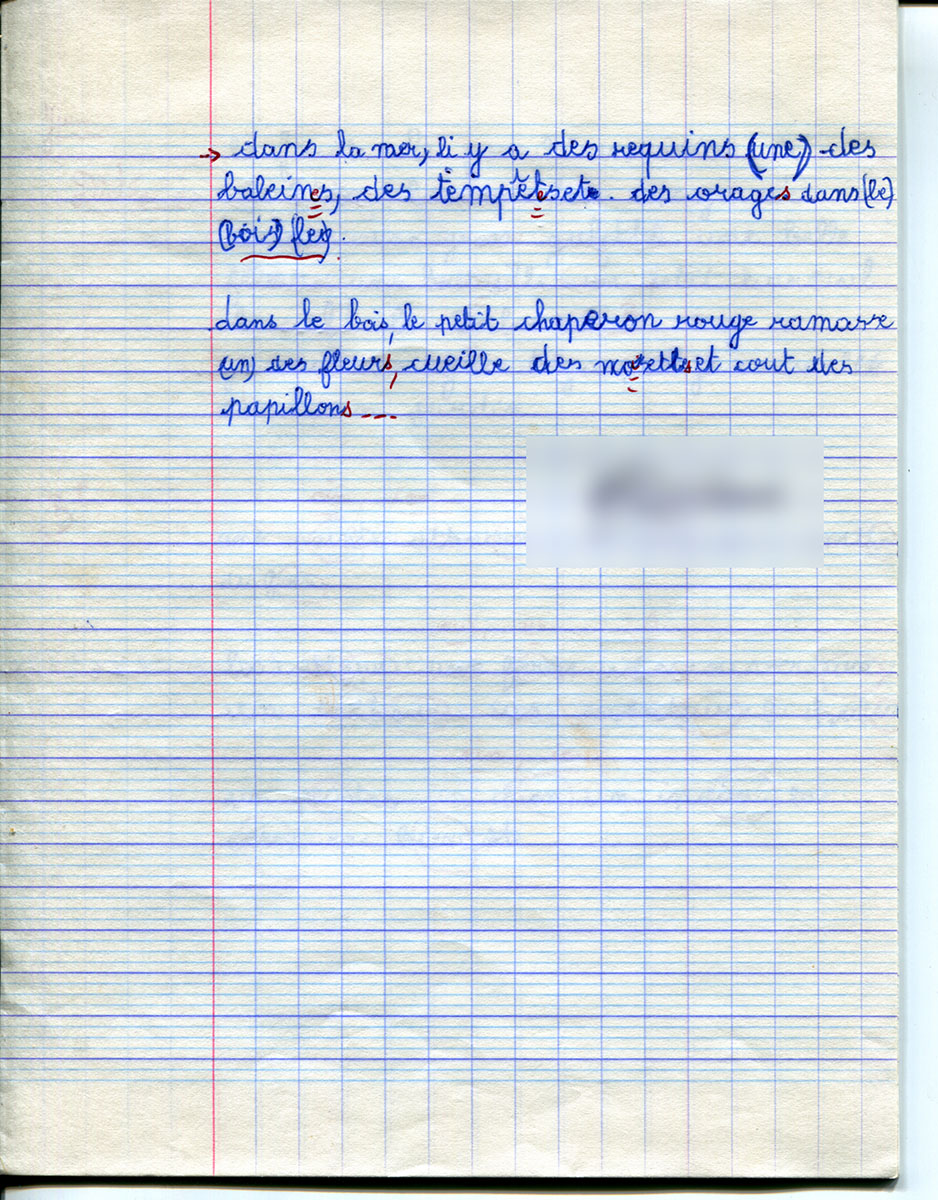 → dans la mer, li y a des requins (une) des
baleines, des tempêtset. des orages dans (le)
(bois)
dans le bois, le petit chaperon rouge ramasse
(un) des fleurs, cueille des nosettset cout des
papillons ---